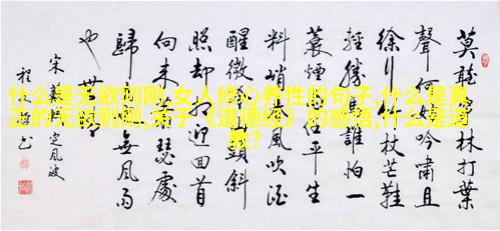 什么是无欲则刚,女人修心养性的句子,什么是真
正的无欲则刚,关于《道德经》的感悟,什么是道
教?
莫聽穿林打葉
聲何妨吟嘯且
徐行竹杖芒鞋
輕勝馬誰怕一
蓑煙雨任平生
料峭春風吹酒
醒微冷山頭斜
照却相迎回首
向来蕭瑟處
歸去也無風雨
也無
宋蘇軾定風波
程